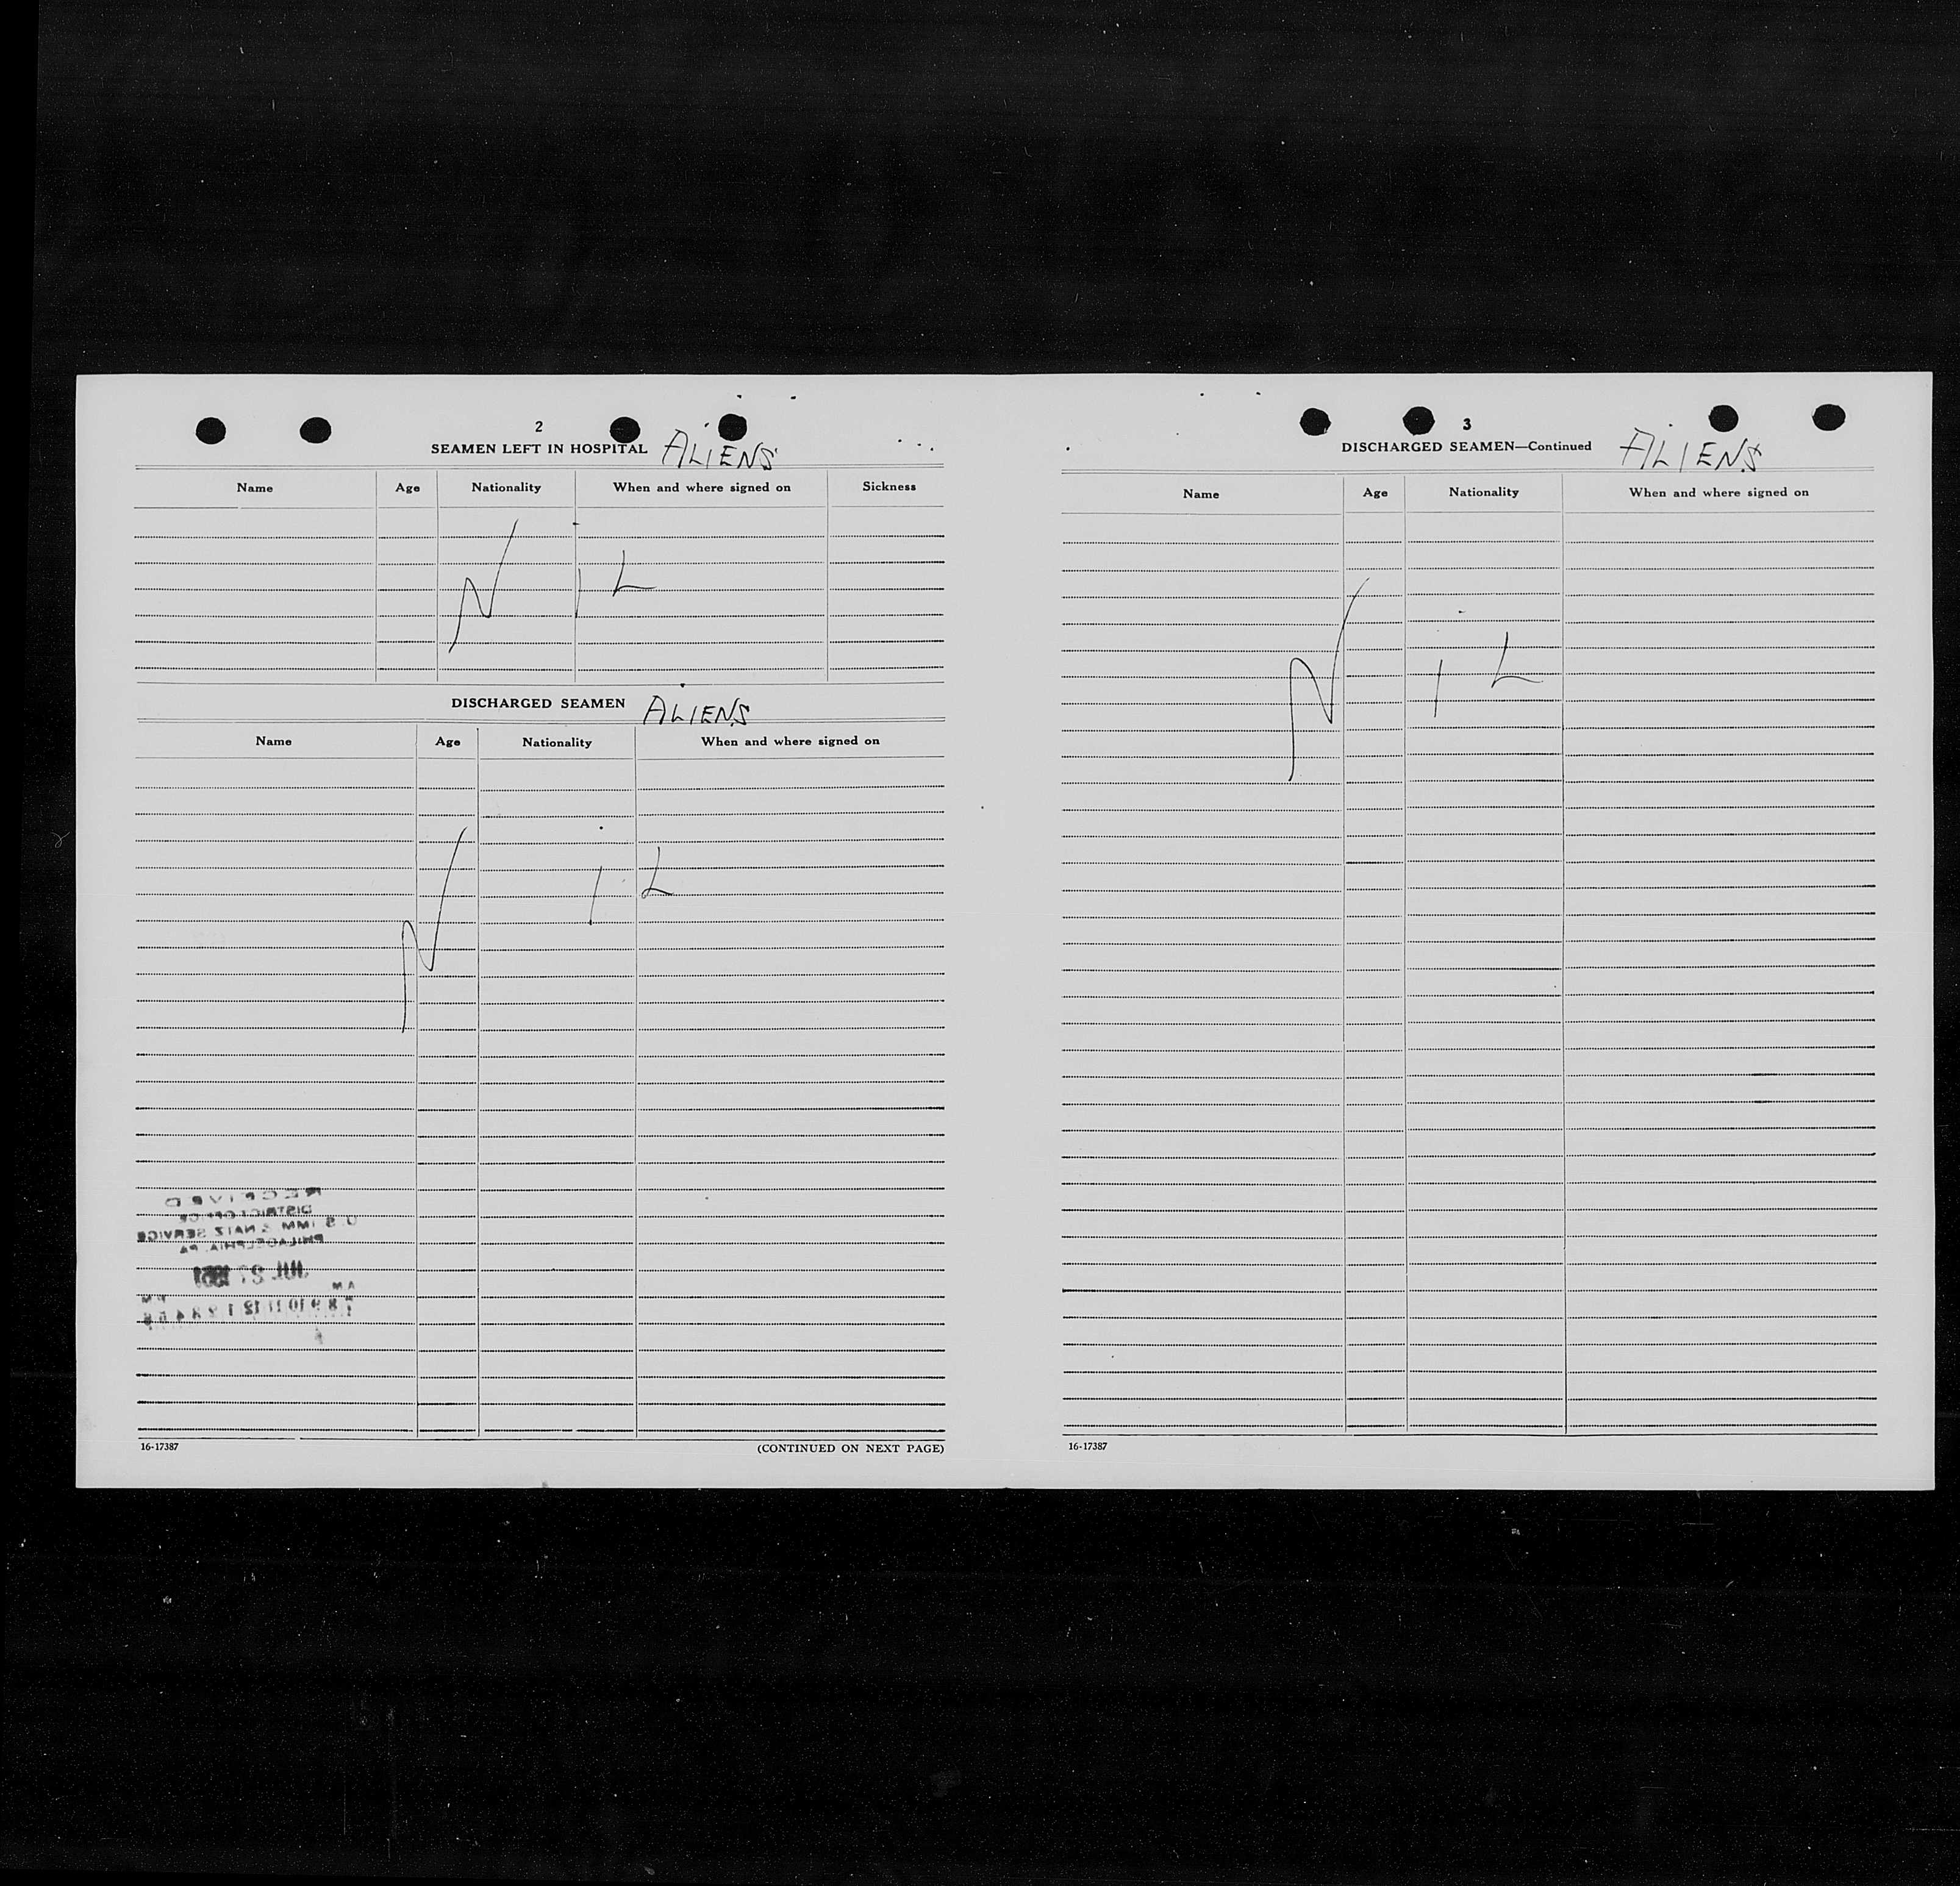 2
SEAMEN LEFT IN HOSPITAL ALIENS
Name Age Nationality When and where signed on Sickness
NIL
DISCHARGED SEAMEN ALIENS
Name Age Nationality When and where signed on
NIL
RECEIVED
DISTRICT OFFICE
U. S. IMM & NATZ SERVICE
PHILADELPHIA, PA
JUL
AM PM
7 8 9 10 11 12 1 2 3 4 5 6
16-17387 (CONTINUED ON NEXT PAGE)
3
DISCHARGED SEAMEN—Continued ALIENS
Name Age Nationality When and where signed on
NIL
16-17387